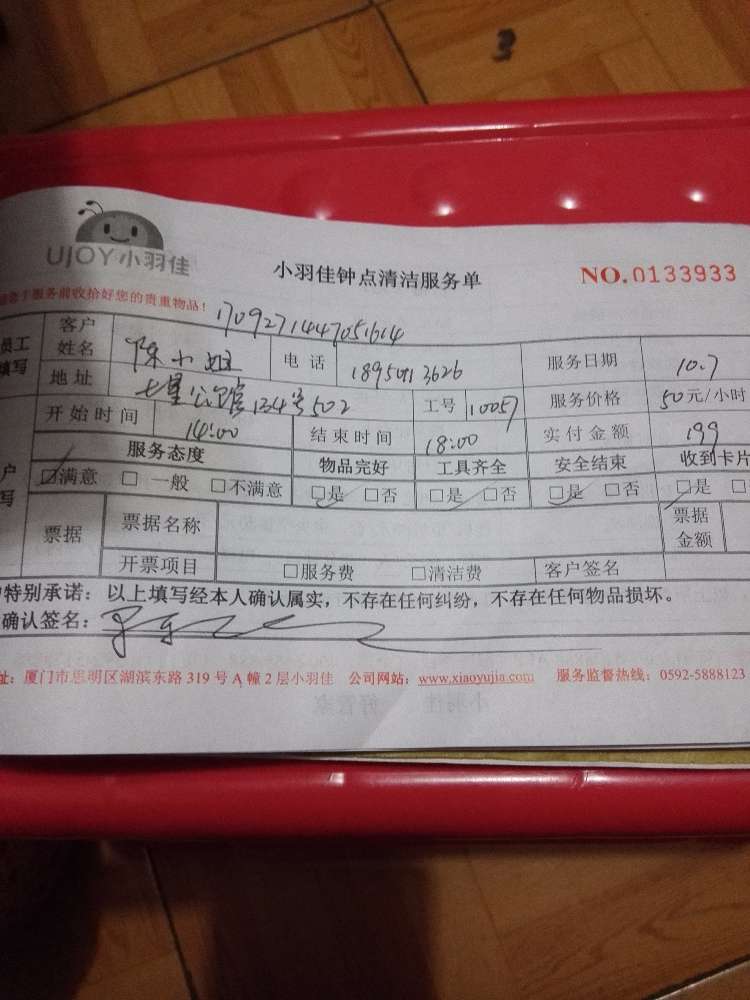 UJOY小羽佳
小羽佳钟点清洁服务单 NO.0133933
服务前收拾好您的贵重物品！
1709271447051614
员工填写 客户姓名 陈小姐 电话 服务日期 10.7
地址 七星公馆134号502 工号 10057 服务价格 50元/小时
开始时间 14:00 结束时间 18:00 实付金额 199
服务态度 物品完好 工具齐全 安全结束 收到卡片
☑满意 □一般 □不满意 □是 □否 □是 □否 □是 □否 □是 □
票据 票据名称 票据金额
开票项目 □服务费 □清洁费 客户签名
特别承诺：以上填写经本人确认属实，不存在任何纠纷，不存在任何物品损坏。
确认签名：
址：厦门市思明区湖滨东路 319 号 A 幢 2 层小羽佳 公司网站：www.xiaoyujia.com 服务监督热线：0592-5888123